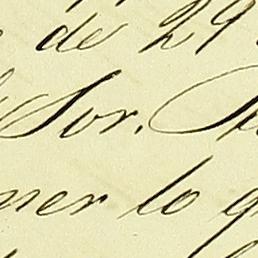 de 29
Sor.
ner lo q